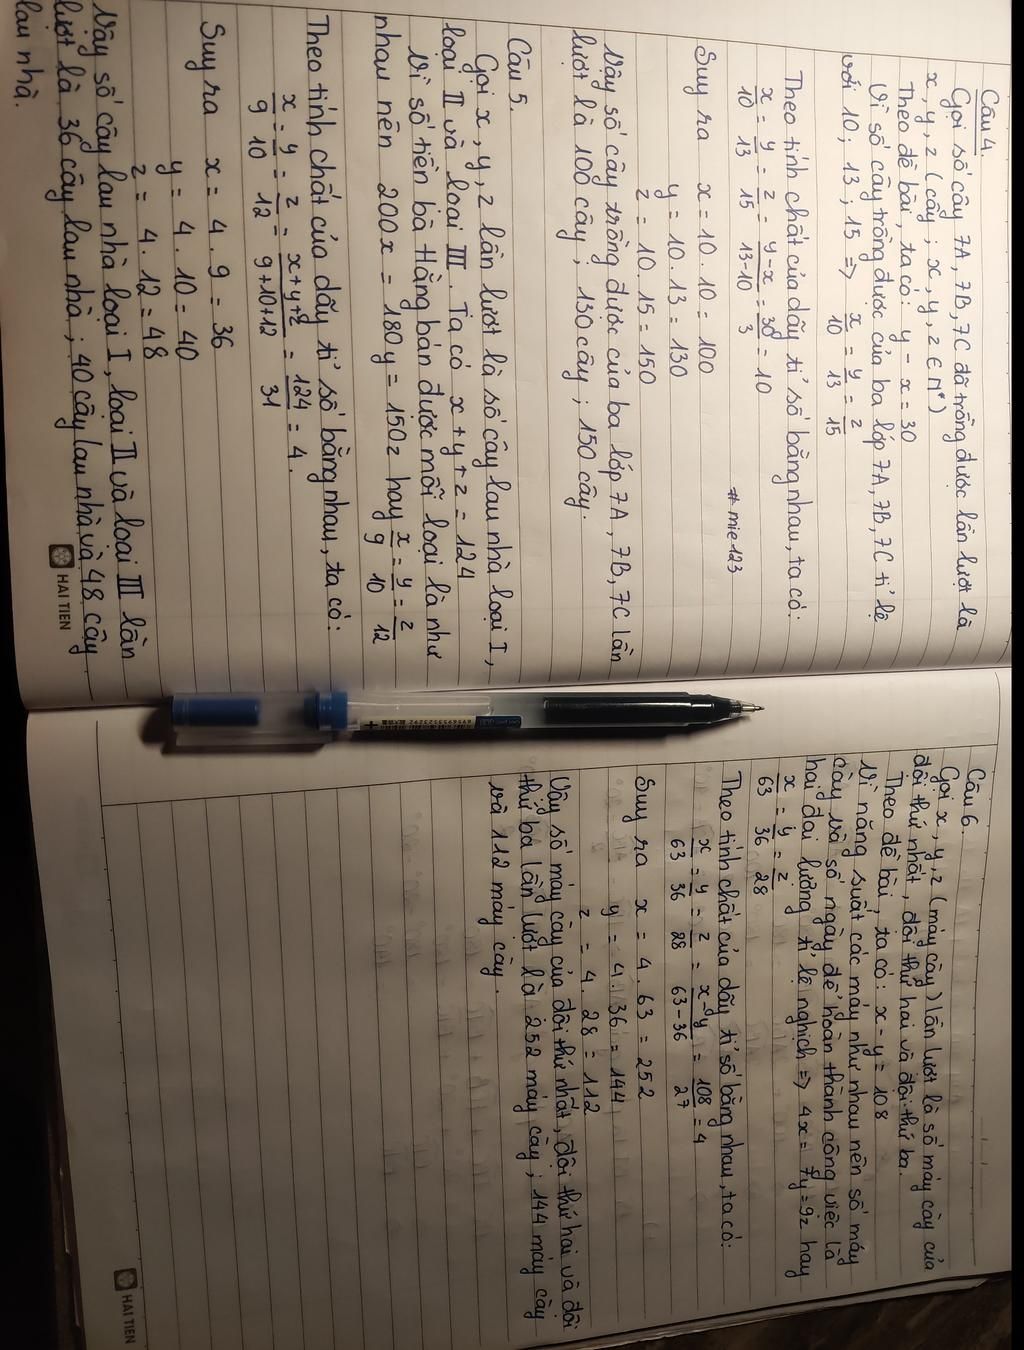 Câu 4.
Gọi số cây 7A, 7B, 7C đã trồng được lần lượt là
x, y, z (cây ; x, y, z ∈ N*)
Theo đề bài, ta có: y - x = 30
Vì số cây trồng được của ba lớp 7A, 7B, 7C tỉ lệ
với 10 ; 13 ; 15 => x/10 = y/13 = z/15
Theo tính chất của dãy tỉ số bằng nhau, ta có:
x/10 = y/13 = z/15 = y-x/13-10 = 30/3 = 10
# mie123
Suy ra x = 10 . 10 = 100
y = 10 . 13 = 130
z = 10 . 15 = 150
Vậy số cây trồng được của ba lớp 7A, 7B, 7C lần
lượt là 100 cây ; 130 cây ; 150 cây.
Câu 5.
Gọi x, y, z lần lượt là số cây lau nhà loại I,
loại II và loại III. Ta có x + y + z = 124
Vì số tiền bà Hằng bán được mỗi loại là như
nhau nên 200x = 180y = 150z hay x/9 = y/10 = z/12
Theo tính chất của dãy tỉ số bằng nhau, ta có:
x/9 = y/10 = z/12 = x+y+z/9+10+12 = 124/31 = 4.
Suy ra x = 4 . 9 = 36
y = 4 . 10 = 40
z = 4 . 12 = 48
Vậy số cây lau nhà loại I, loại II và loại III lần
lượt là 36 cây lau nhà ; 40 cây lau nhà và 48 cây
lau nhà.
HAI TIEN
Câu 6.
Gọi x, y, z (máy cày) lần lượt là số máy cày của
đội thứ nhất, đội thứ hai và đội thứ ba.
Theo đề bài, ta có: x - y = 108
Vì năng suất các máy như nhau nên số máy
cày và số ngày để hoàn thành công việc là
hai đại lượng tỉ lệ nghịch => 4x = 7y = 9z hay
x/63 = y/36 = z/28
Theo tính chất của dãy tỉ số bằng nhau, ta có:
x/63 = y/36 = z/28 = x-y/63-36 = 108/27 = 4
Suy ra x = 4 . 63 = 252
y = 4 . 36 = 144
z = 4 . 28 = 112
Vậy số máy cày của đội thứ nhất, đội thứ hai và đội
thứ ba lần lượt là 252 máy cày ; 144 máy cày
và 112 máy cày.
HAI TIEN